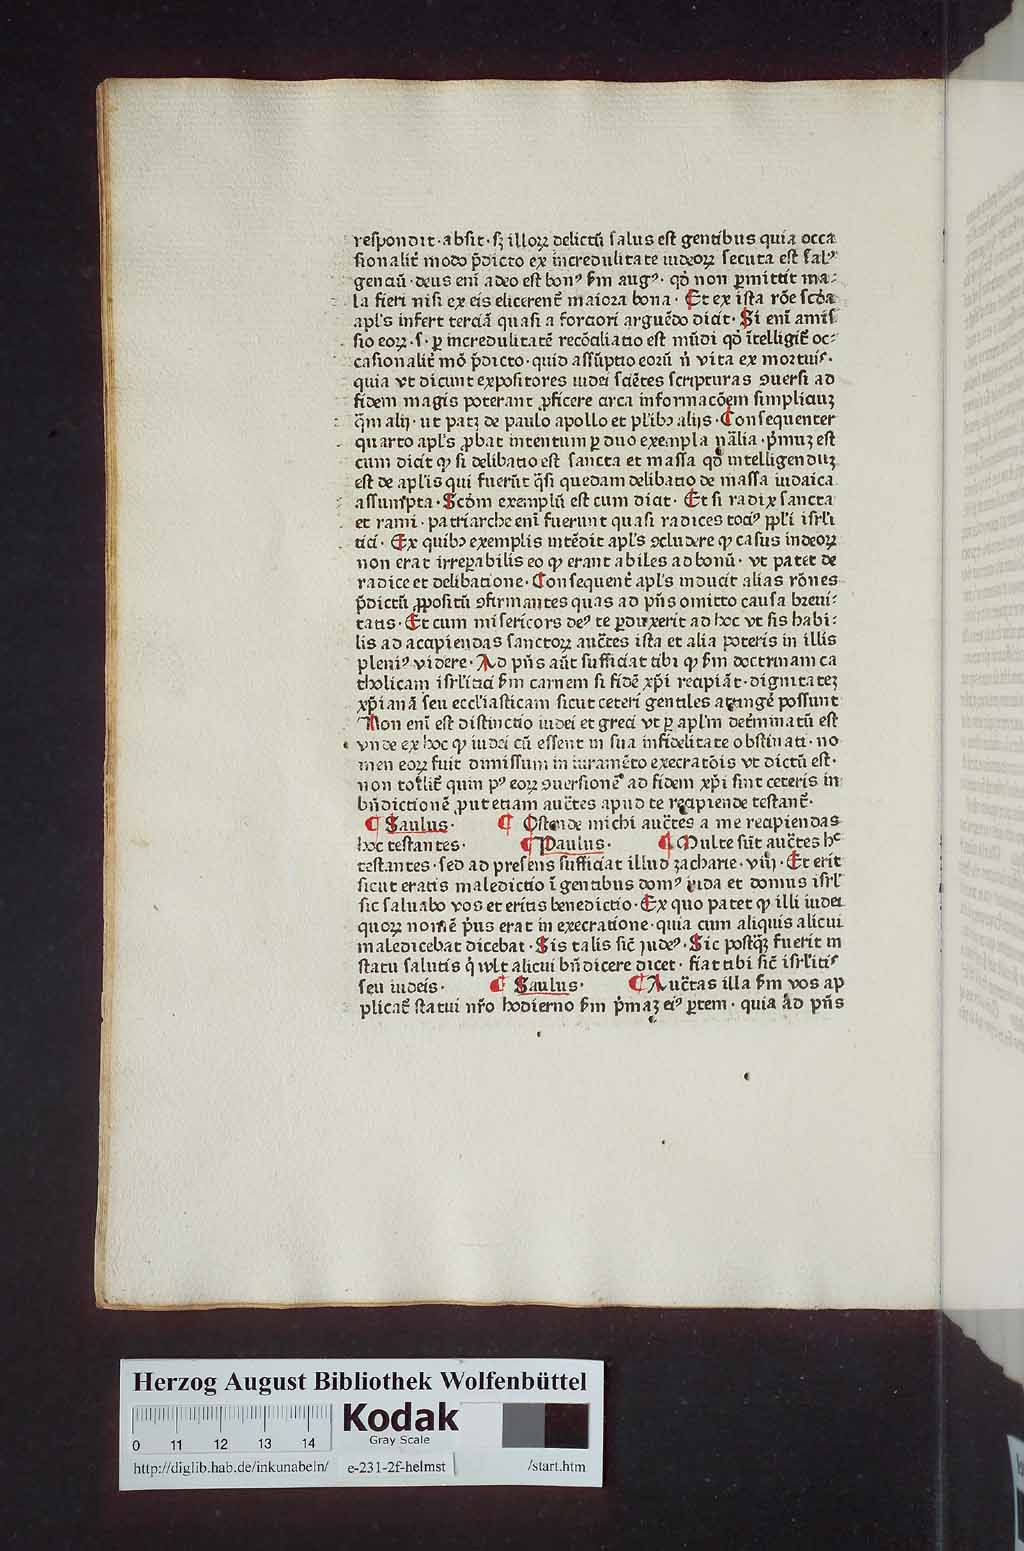 respondit · absit · sꝫ illoꝝ delictū salus est gentibus quia occa
sionalit̄ modo p̄dicto ex incredulitate iudeoꝝ secuta est salꝰ
genciū · deus eni̅ adeo est bonꝰ ẜm augꝰ · qd̓ non ꝑmittit ma⸗
la fieri nisi ex eis elicerent̄ maiora bona · Et ex ista rōe scd̓a
apl̓s infert terciā quasi a forciori arguēdo dicit · Si eni̅ amis
sio eoꝝ · s · ꝑ incredulitatē recōciliatio est mūdi qd̓ ītelligit̄ oc⸗
casionalit̄ mō p̄dicto · quid assūptio eorū n̄ vita ex mortuis ·
quia vt dicunt expositores iudei sciētes scripturas ꝯuersi ad
fidem magis poterant ꝓficere circa informacōem simpliciuꝫ
q̄m alij · ut patꝫ de paulo apollo et pl̓ibꝫ alijs · Consequenter
quarto apl̓s ꝓbat intentum ꝑ duo exempla nāl̓ia · p̓muꝫ est
cum dicit ꝙ si delibatio est sancta et massa qd̓ intelligenduꝫ
est de apl̓is qui fuerūt q̄si quedam delibatio de massa iudaica
assumpta · Scd̓m exemplū est cum dicit · Et si radix sancta
et rami · patriarche eni̅ fuerunt quasi radices tociꝰ ppl̓i isrl̓i
tici · Ex quibꝫ exemplis intēdit apl̓s ꝯcludere ꝙ casus iudeoꝝ
non erat irreꝑabilis eo ꝙ erant abiles ad bonū · vt patet de
radice et delibatione · Consequent̄ apl̓s inducit alias rōnes
p̄dictū ꝓpositū ꝯfirmantes quas ad pn̄s omitto causa breui⸗
tatis · Et cum misericors deꝰ te perduxerit ad hoc vt sis habi⸗
lis ad accipiendas sanctoꝝ auct̄es ista et alia poteris in illis
pleniꝰ videre · Ad pn̄s aūt sufficiat tibi ꝙ ẜm doctrinam ca
tholicam isrl̓itici ẜm carnem si fidē xp̄i recipiāt · dignitateꝫ
xp̄ianā seu eccl̓iasticam sicut ceteri gentiles attingē possunt
Non eni̅ est distinctio iudei et greci vt ꝑ apl̓m det̄minatū est
vnde ex hoc ꝙ iudei cū essent in sua infidelitate obstinati · no
men eoꝝ fuit dimissum in iuramēto execratōis vt dictū est ·
non tollit̄ quin pꝰ eoꝝ ꝯuersionē ad fidem xp̄i sint ceteris in
bn̄dictionē ꝓut etiam auct̄es apud te recipiende testant̄ ·
¶ Saulus · ¶ Ostende michi auct̄es a me recipiendas
hoc testantes · ¶ Paulus · ¶ Multe sūt auct̄es hᶜ
testantes · sed ad presens sufficiat illud zacharie · viij · Et erit
sicut eratis maledictio ī gentibus domꝰ iuda et domus isrl̓
sic saluabo vos et eritis benedictio · Ex quo patet ꝙ illi iudei
quoꝝ nomē p̓us erat in execratione · quia cum aliquis alicui
maledicebat dicebat · Sis talis sic̄ judeꝰ · Sic postq̄ꝫ fuerit in
statu salutis q̓ wlt alicui bn̄dicere dicet · fiat tibi sic̄ isrl̓itis
seu iudeis · ¶ Saulus · ¶ Auct̄as illa ẜm vos ap
plicat̄ statui nr̄o hodierno ẜm p̓maꝫ eiꝰ ꝑtem · quia ad pn̄s
Herzog August Bibliothek Wolfenbüttel
0 11 12 13 14
Kodak
Gray Scale
http://diglib.hab.de/inkunabeln/ e-231-2f-helmst /start.htm